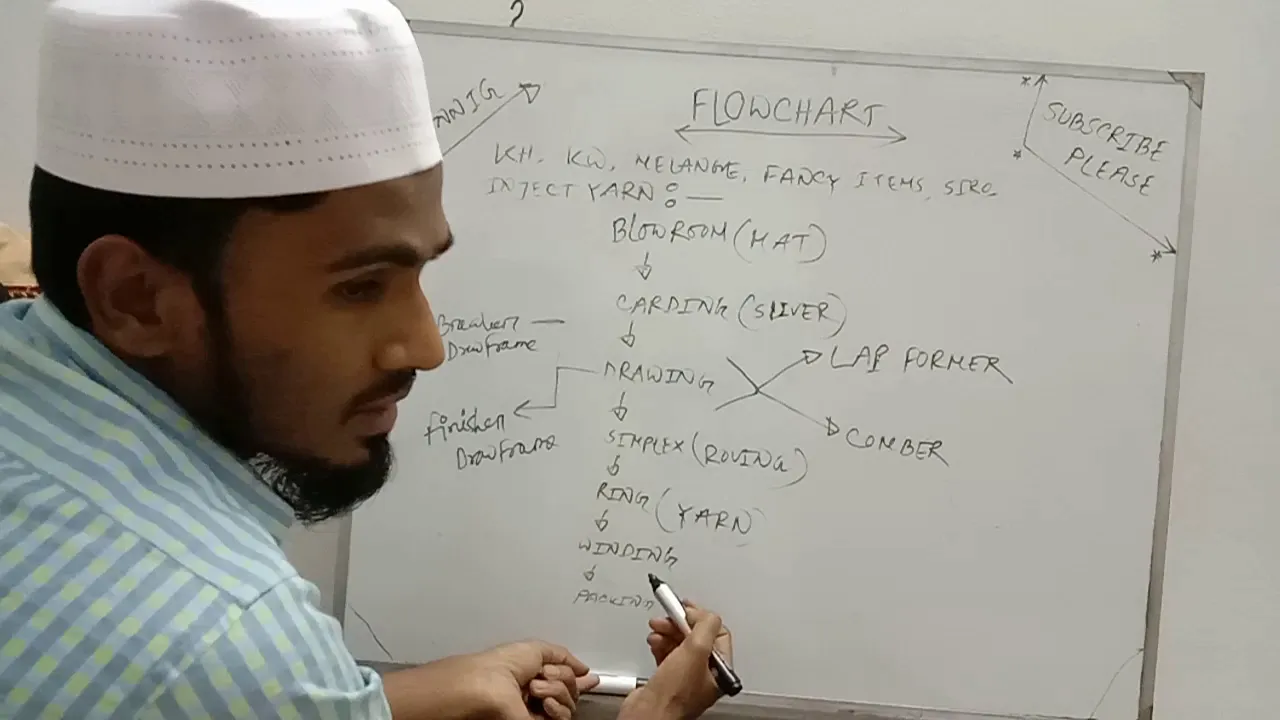 FLOWCHART
SUBSCRIBE
PLEASE
KH, KW, MELANGE, FANCY ITEMS, SIRO
INJECT YARN : —
BLOWROOM (MAT)
CARDING (SLIVER)
Breaker —
Drawframe
DRAWING
LAP FORMER
Finisher
Drawframe
COMBER
SIMPLEX (ROVING)
RING (YARN)
WINDING
PACKING